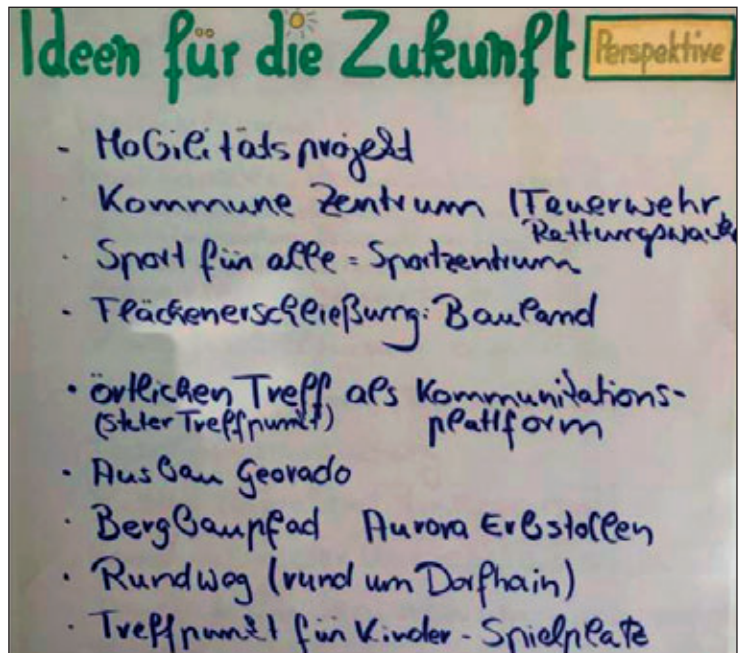 Ideen für die Zukunft Perspektive
- Mobilitätsprojekt
· Kommune Zentrum / Feuerwehr,
Rettungswache
· Sport für alle = Sportzentrum
· Flächenerschließung: Bauland
· örtlichen Treff als Kommunikations-
(Skater Treffpunkt) plattform
· Ausbau Georado
· Bergbaupfad Aurora Erbstollen
· Rundweg (rund um Dorfhain)
· Treffpunkt für Kinder - Spielplatz